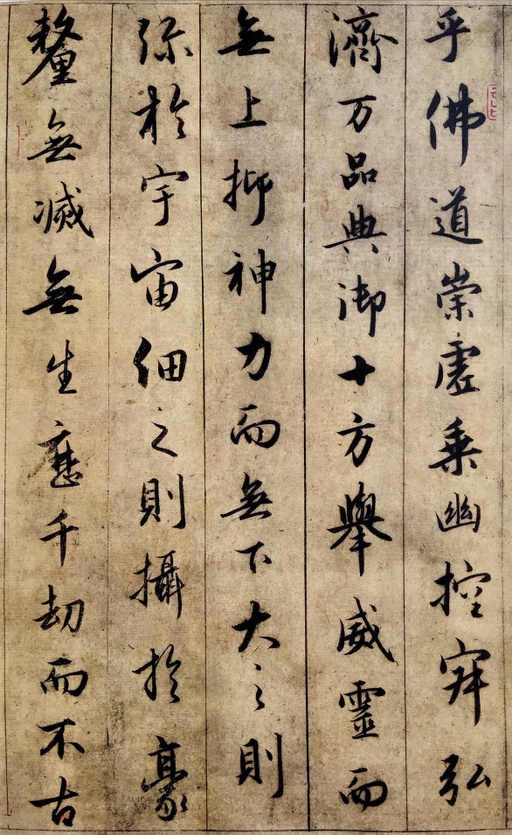 乎佛道崇虛乘幽控寂弘
濟万品典御十方舉威靈而
無上抑神力而無下大之則
弥於宇宙細之則攝於豪
釐無滅無生歷千劫而不古